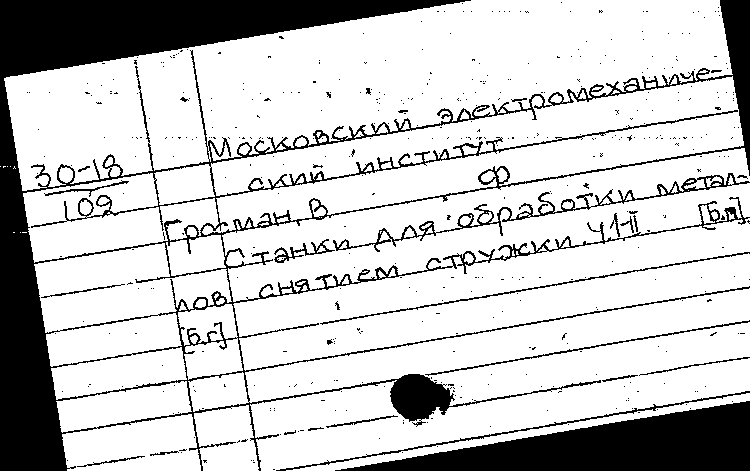 Московский электромеханиче-
ский институт
30-18
109
ф
Гросман, В
Станки для обработки метал-
лов снятием стружки. Ч.I-II. [б.м]
[б.г]